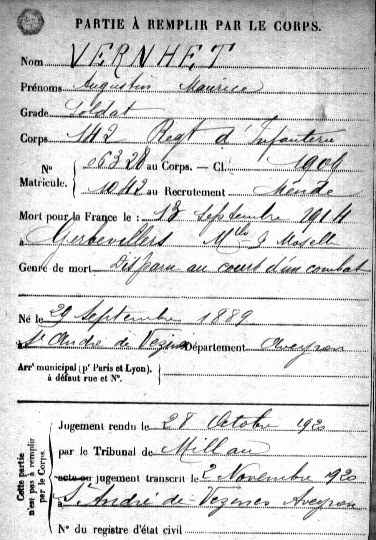 PARTIE À REMPLIR PAR LE CORPS.
Nom VERNHET
Prénoms Augustin Maurice
Grade Soldat
Corps 142 Regt d'Infanterie
N° Matricule. 06328 au Corps. — Cl. 1909
1042 au Recrutement Mende
Mort pour la France le : 13 septembre 1914
à Gerbevillers Mthe & Moselle
Genre de mort Disparu au court d'un combat
Né le 29 Septembre 1889
à St André de Vezines Département Aveyron
Arrt municipal (pr Paris et Lyon),
à défaut rue et N°.
Cette partie n'est pas à remplir par le Corps.
Jugement rendu le 28 Octobre 1920
par le Tribunal de Millau
acte ou jugement transcrit le 2 Novembre 1920
à St André de Vezines Aveyron
N° du registre d'état civil